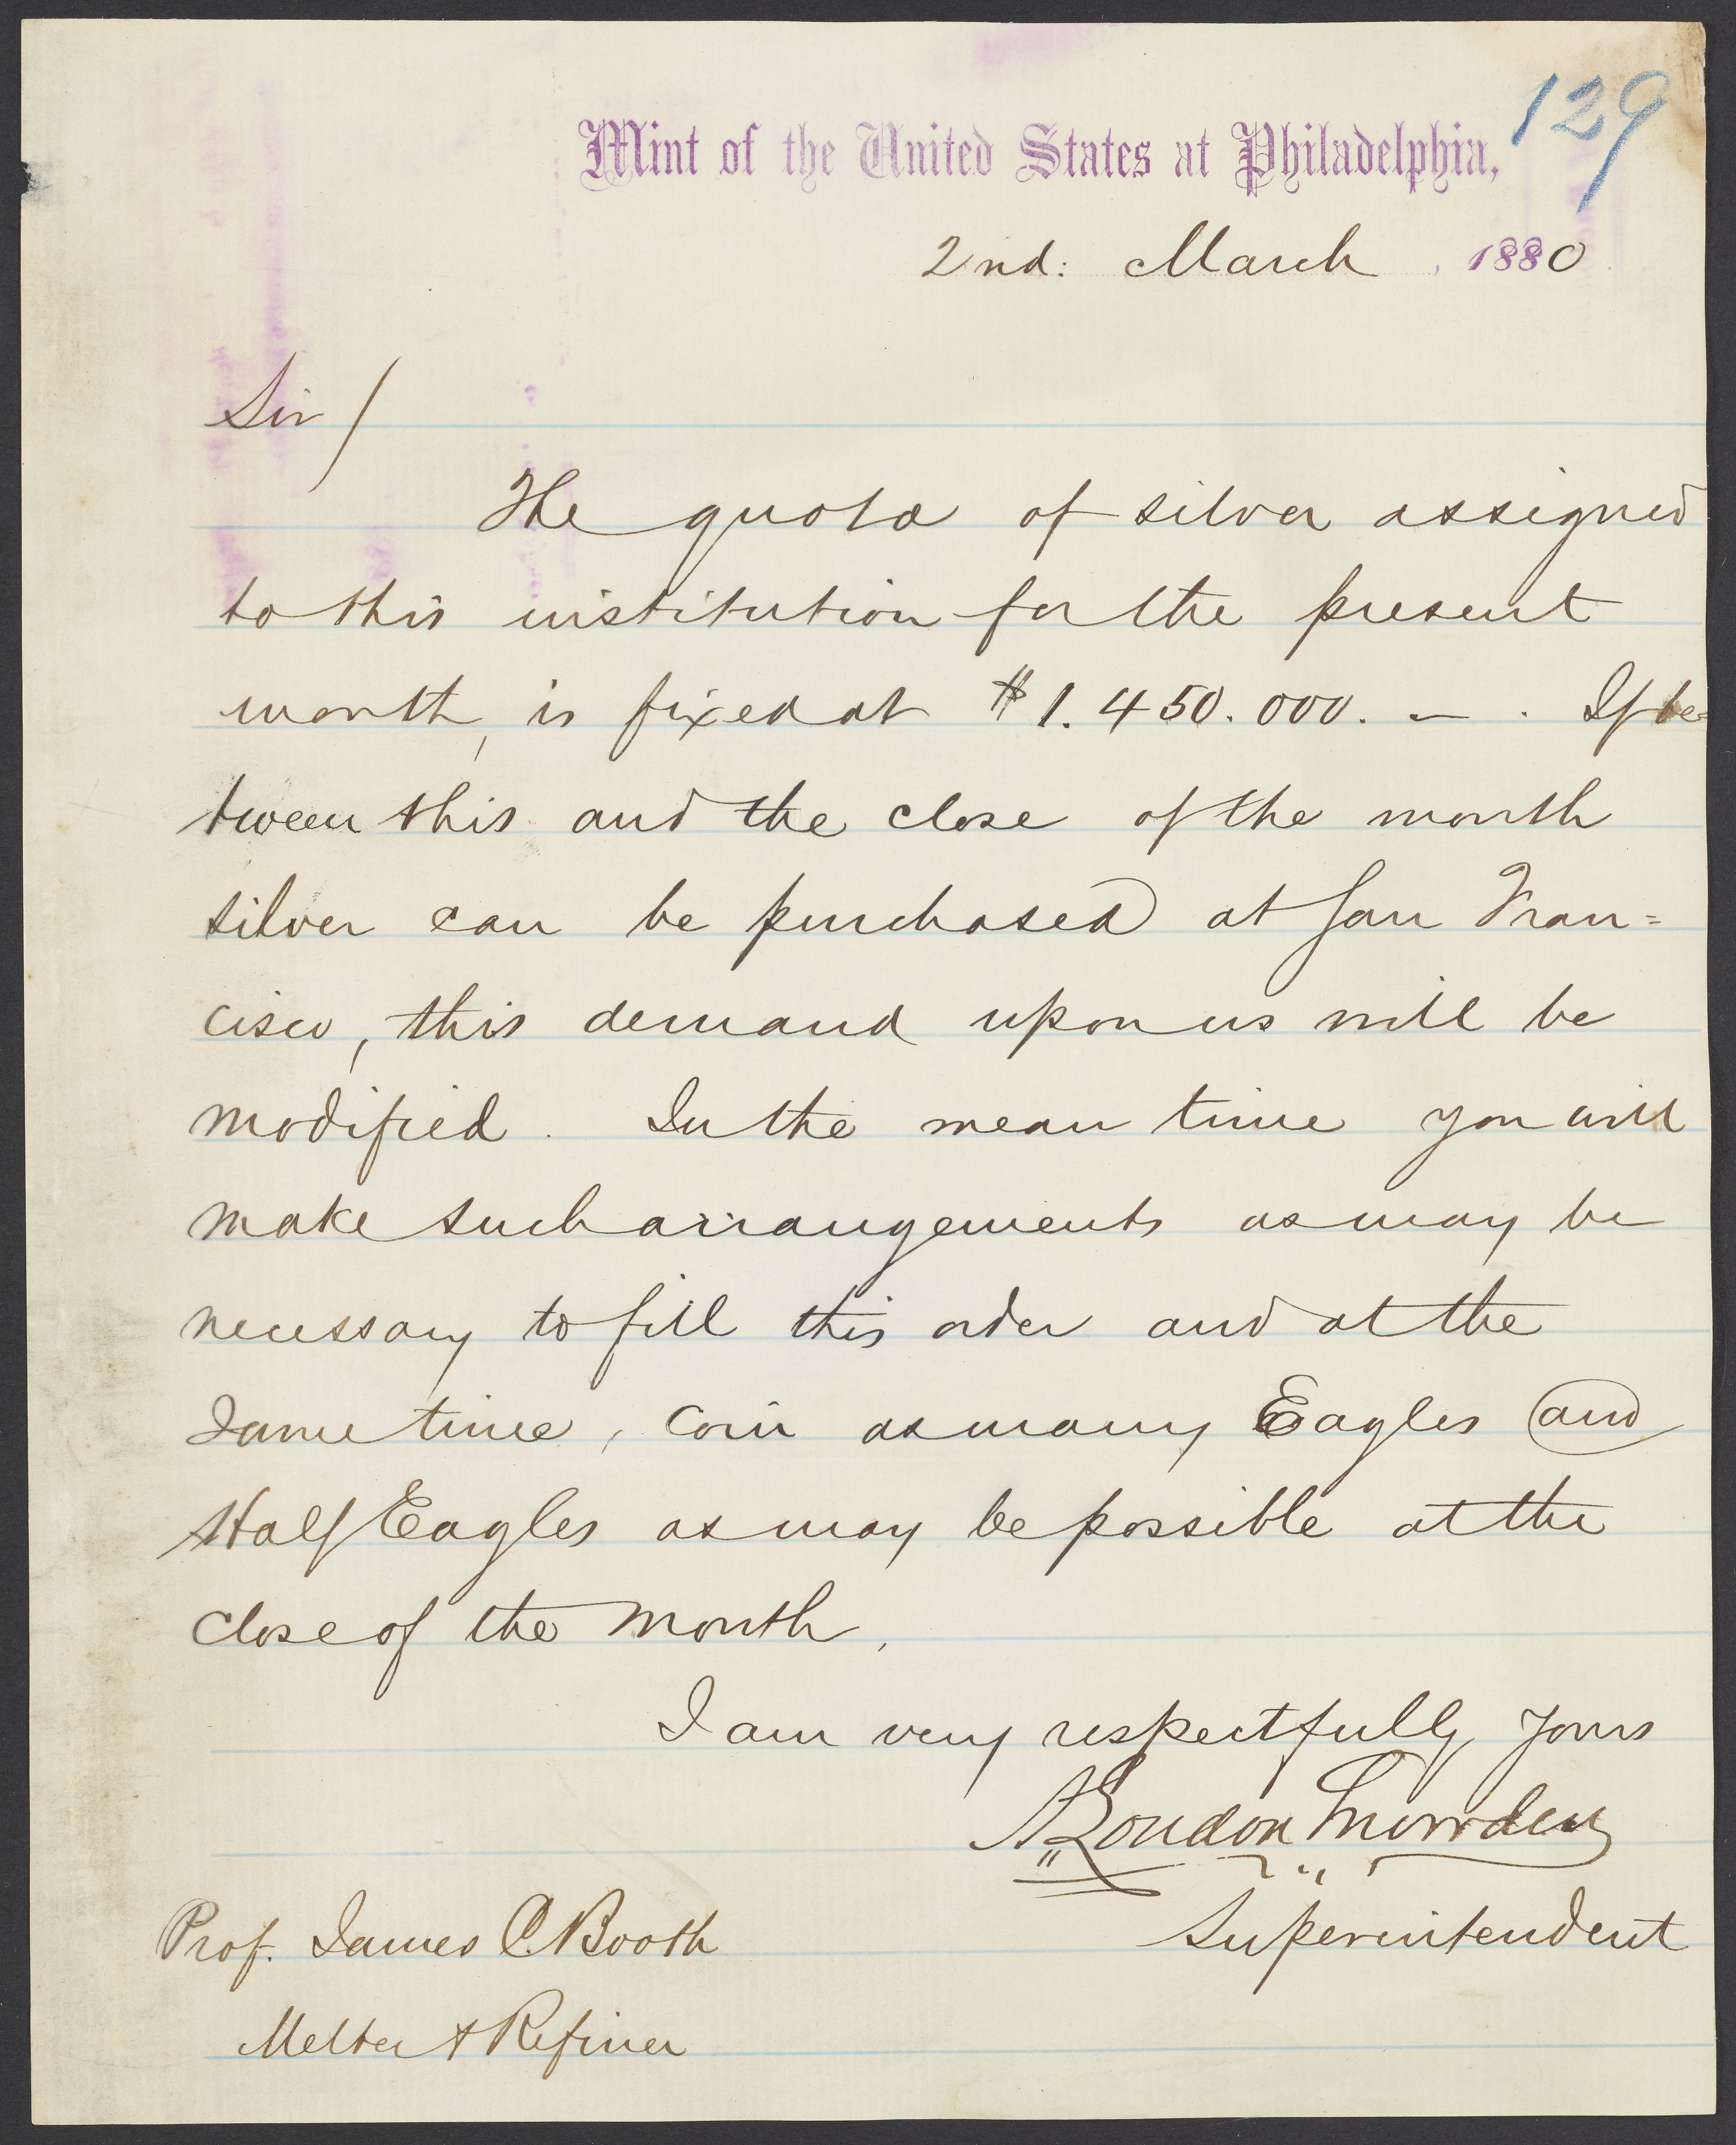 129
Mint of the United States at Philadelphia,
2nd: March, 1880
Sir/
The quota of silver assigned
to this institution for the present
month, is fixed at $1.450.000. — . If be-
tween this and the close of the month
silver can be purchased at San Fran=
cisco, this demand upon us will be
modified. In the mean time you will
make such arrangements as may be
necessary to fill this order and at the
same time, coin as many Eagles and
Half Eagles as may be possible at the
close of the month.
I am very respectfully yours
A Loudon Snowden
Superintendent
Prof. James C. Booth
Melter & Refiner